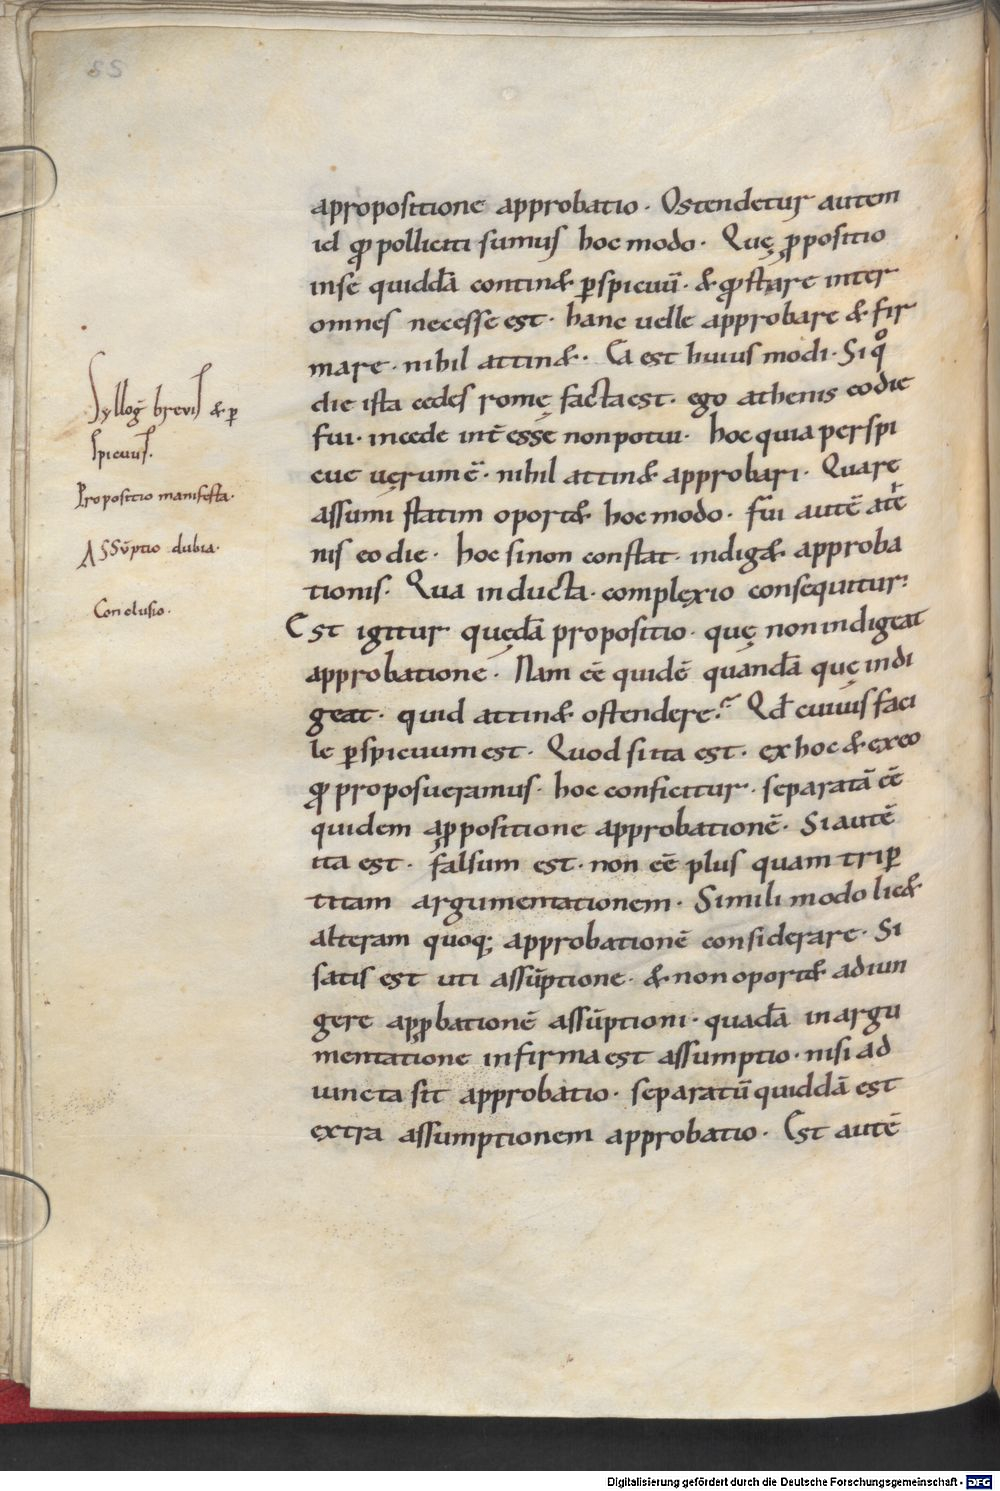 55
apropositione approbatio. Ostendetur autem
id qđ polliciti sumus hoc modo. Quę ꝓpositio
inse quiddā contin& ꝑspicuū. & qđ stare inter
omnes necesse est. hanc uelle approbare & fir
mare. nihil attin&. Ea est huius modi. Si qͦ
die ista cedes romę facta est. ego athenis eo die
fui. incede inťesse non potui. hoc quia perspi
cue uerum ē. nihil attin& approbari. Quare
assumi statim oport& hoc modo. fui autē athē
nis eo die. hoc sinon constat. indig& approba
tionis. Qua inducta. complexio consequitur.
Est igitur quędā propositio. quę non indigeat
approbatione. Nam eē quidē quandā quę indi
geat. quid attin& ostendere? Qđ cuiuis faci
le ꝑspicuum est. Quod si ita est. ex hoc & ex eo
qđ proposueramus. hoc conficitur. separatā eē
quidem aꝓpositione approbationē. Si autē
ita est. falsum est. non eē plus quam triꝑ
titam argumentationem. Simili modo lic&
alteram quoq; approbationē considerare. Si
satis est uti assūptione. & non oport& adiun
gere apꝓbationē assūptioni. quadā in argu
mentatione infirma est assumptio. nisi ad
iuncta sit approbatio. separatū quiddā est
extra assumptionem approbatio. Est autē
Syllog̃ brevis & ꝑ
spicuus.
Propositio manifesta.
Assūptio dubia.
Conclusio.
Digitalisierung gefördert durch die Deutsche Forschungsgemeinschaft - DFG